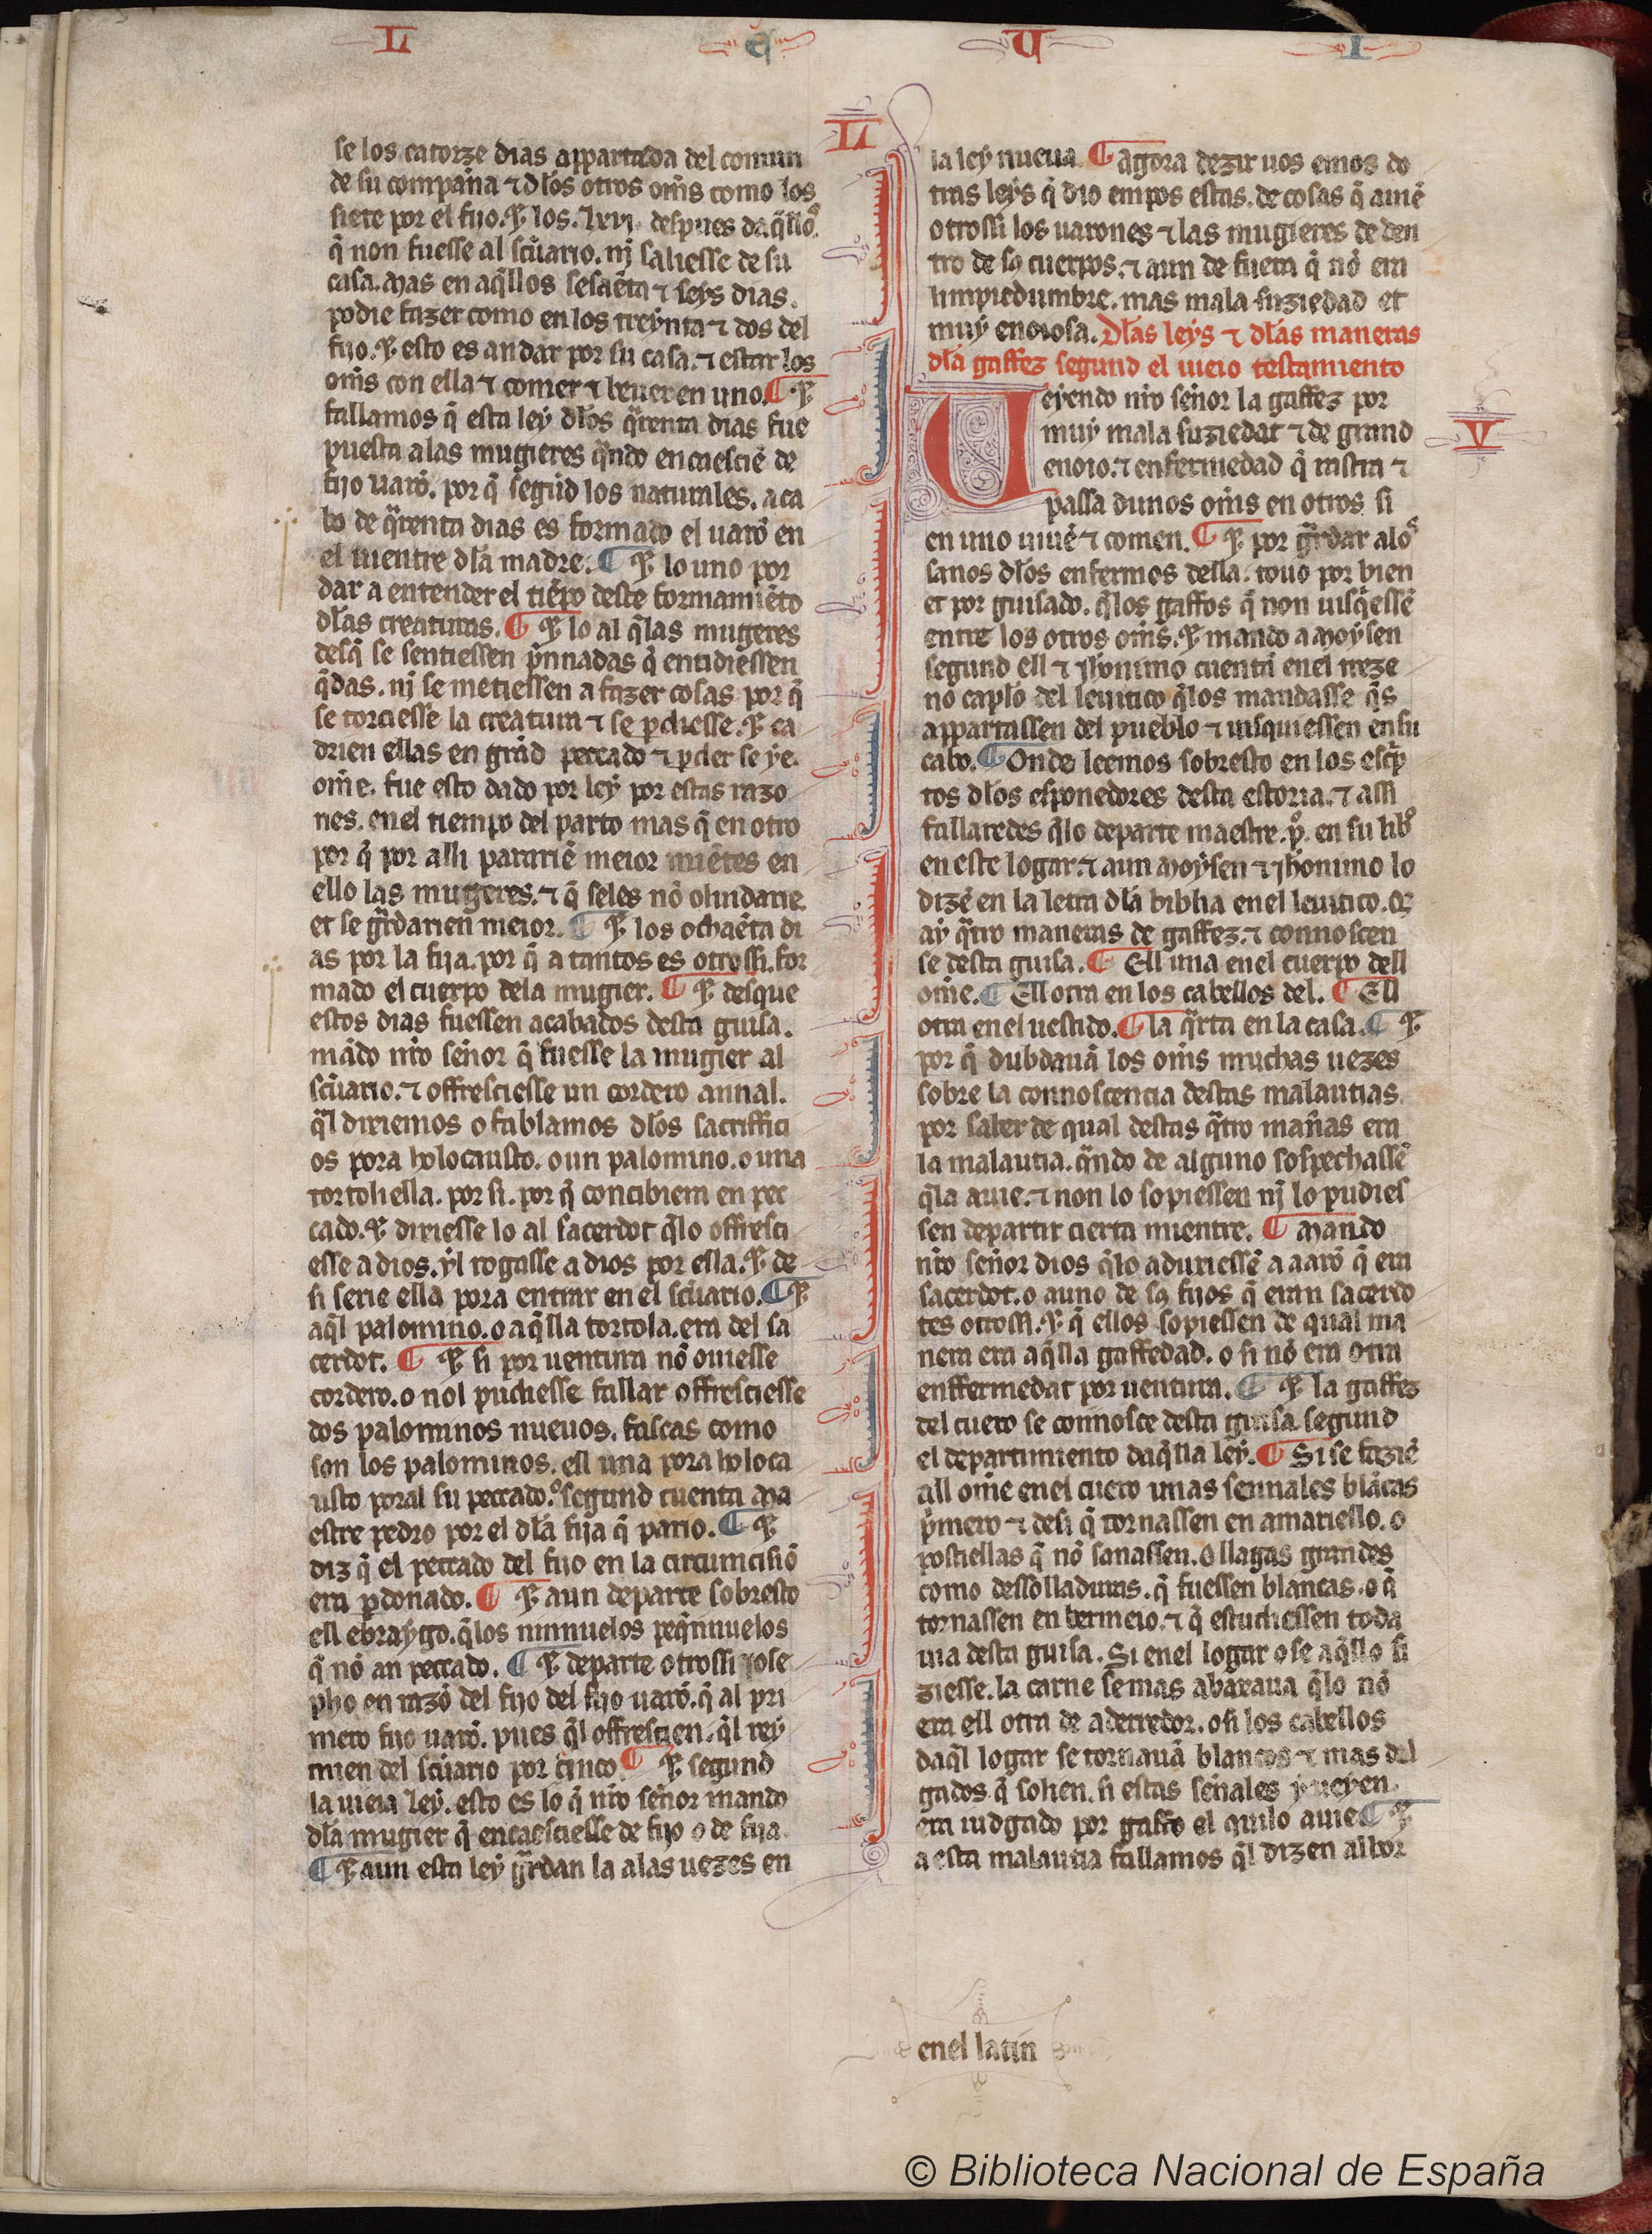 L E U I
se los catorze dias appartada del comun
de su companna ⁊ dlos otros om̃s como los
siete por el fijo. ⁊ los. lxvj. despues daq̃llos.
q̃ non fuesse al scũario. nj̃ saliesse de su
casa. Mas en aq̃llos sesaẽta ⁊ seys dias.
podie fazer como en los treynta ⁊ dos del
fijo. ⁊ esto es andar por su casa. ⁊ estar los
om̃s con ella ⁊ comer ⁊ beuer en uno. ¶ ⁊
fallamos q̃ esta ley dlos q̃renta dias fue
puesta alas mugieres q̃ndo encaesciẽ de
fijo uarõ. por q̃ segũd los naturales. aca
bo de q̃renta dias es formado el uarõ en
el uientre dla madre. ¶ ⁊ lo uno por
dar a entender el tiẽpo deste formamiẽto
dlas creaturas. ¶ ⁊ lo al q̃las mugeres
desq̃ se sentiessen p̃nnadas q̃ entidiessen
q̃das. nj̃ se metiessen a fazer cosas por q̃
se torciesse la creatura ⁊ se ꝑdiesse. ⁊ ca
drien ellas en grãd peccado ⁊ ꝑder se ye.
om̃e. fue esto dado por ley por estas razo
nes. enel tiempo del parto mas q̃ en otro
por q̃ por alli pararie meior miẽtes en
ello las mugeres. ⁊ q̃ seles nõ oluidarie.
et se g̃rdarien meior. ¶ ⁊ los ochaẽta di
as por la fija. por q̃ a tantos es otrossi. for
mado el cuerpo dela mugier. ¶ ⁊ desque
estos dias fuessen acabados desta guisa.
mãdo nr̃o sennor q̃ fuesse la mugier al
scũario. ⁊ offresciesse un cordero annal.
q̃l dixiemos o fablamos dlos sacriffici
os pora holocausto. o un palomino. o una
tortoliella. por si. por q̃ concibiera en pec
cado. ⁊ dixiesse lo al sacerdot q̃lo offresci
esse a dios. yl rogasse a dios por ella. ⁊ de
si serie ella pora entrar en el scũario. ¶ ⁊
aq̃l palomino. o aq̃lla tortola. era del sa
cerdot. ¶ ⁊ si por uentura nõ ouiesse
cordero. o nol pudiesse fallar offresciesse
dos palominos nueuos. fascas como
son los palominos. ell una pora holoca
usto poral su peccado. segund cuenta ma
estre pedro por el dla fija q̃ pario. ¶ ⁊
diz q̃ el peccado del fijo en la circumcisiõ
era ꝑdonado. ¶ ⁊ aun departe sobresto
ell ebraygo. q̃los ninnuelos peq̃nnuelos
q̃ nõ an peccado. ¶ ⁊ departe otrossi iose
pho en razõ del fijo del fijo uarõ. q̃ al pri
mero fijo uarõ. pues q̃l offrescien. q̃l rey
mien del scũario por cinco ¶ ⁊ segund
la uieia ley. esto es lo q̃ nr̃o sennor mando
dla mugier q̃ encaesciesse de fijo o de fija.
¶ ⁊ aun esta ley g̃rdan la alas uezes en
L
la ley nueua. ¶ Agora dezir uos emos do
tras leys q̃ dio empos estas. de cosas q̃ auiẽ
otrossi los uarones ⁊ las mugieres de den
tro de sꝯ cuerpos. ⁊ aun de fuera q̃ nõ era
limpiedumbre. mas mala suziedad et
muy enoiosa. Dlas leys ⁊ dlas maneras
dla gaffez segund el uieio testamiento
V
Veyendo nr̃o sennor la gaffez por
muy mala suziedat ⁊ de grand
enoio. ⁊ enfermedad q̃ rastra ⁊
passa dunos om̃s en otros si
en uno uiuẽ ⁊ comen. ¶ ⁊ por g̃rdar alos
sanos dlos enfermos della. touo por bien
et por guisado. q̃los gaffos q̃ non uisq̃essẽ
entre los otros om̃s. ⁊ mando a moysen
segund ell ⁊ ih̃onimo cuentã enel treze
no cap̃lo del leuitico q̃los mandasse q̃s
appartassen del pueblo ⁊ uisquiessen en su
cabo. ¶ Onde leemos sobresto en los esc̃p
tos dlos esponedores desta estoria. ⁊ assi
fallaredes q̃lo departe maestre. p̊. en su lib̊
en este logar. ⁊ aun moysen ⁊ ih̃onimo lo
dizẽ en la letra dla biblia enel leuitico. q̃
ay q̃tro maneras de gaffez. ⁊ connoscen
se desta guisa. ¶ Ell una enel cuerpo dell
om̃e. ¶ Ell otra en los cabellos del. ¶ Ell
otra enel uestido. ¶ la q̃rta en la casa. ¶ ⁊
por q̃ dubdauã los om̃s muchas uezes
sobre la connoscencia destas malautias.
por saber de qual destas q̃tro man̾as era
la malautia. q̃ndo de alguno sospechassẽ
q̃la auie. ⁊ non lo sopiessen nj̃ lo pudies
sen departir cierta mientre. ¶ Mando
nr̃o sennor dios q̃lo aduxiessẽ a aarõ q̃ era
sacerdot. o auno de sꝯ fijos q̃ eran sacerdo
tes otrossi. ⁊ q̃ ellos sopiessen de qual ma
nera era aq̃lla gaffedad. o si nõ era otra
enffermedat por uentura. ¶ ⁊ la gaffez
del cuero se connosce desta guisa segund
el departimiento daq̃lla ley. ¶ Si se faziẽ
all om̃e enel cuero unas sennales blãcas
p̃mero ⁊ desi q̃ tornassen en amariello. o
postiellas q̃ nõ sanassen. o llagas grandes
como dessolladuras. q̃ fuessen blancas. o q̃
tornassen en bermeio. ⁊ q̃ estudiessen toda
uia desta guisa. Si enel logar o se aq̃llo fi
ziesse. la carne se mas abaxaua q̃lo nõ
era ell otra de aderredor. o si los cabellos
daq̃l logar se tornauã blancos ⁊ mas del
gados q̃ solien. si estas sennales y ueyen.
era iudgado por gaffo el qui lo auie ¶ ⁊
a esta malautia fallamos q̃l dizen albor
enel latin
© Biblioteca Nacional de España